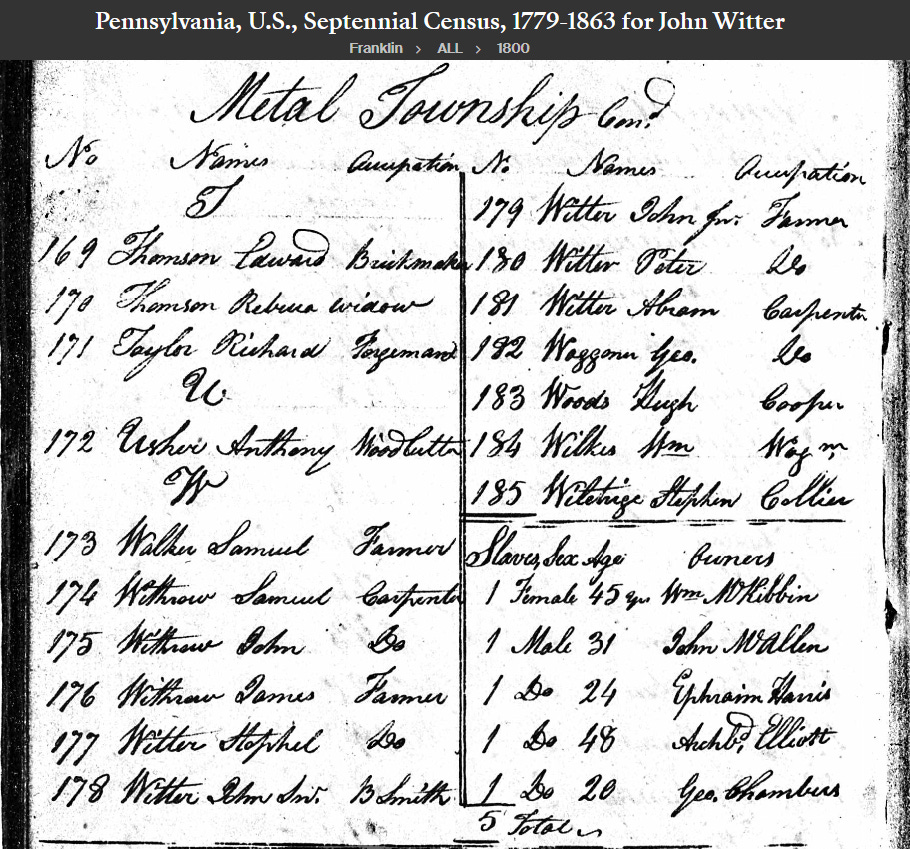 Pennsylvania, U.S., Septennial Census, 1779-1863 for John Witter
Franklin > ALL > 1800
Metal Township Cond.
No Names Occupation
T
169 Thomson Edward Brickmaker
170 Thomson Rebecca widow
171 Taylor Richard Forgeman
U
172 Usher Anthony Woodcutter
W
173 Walker Samuel Farmer
174 Withrow Samuel Carpenter
175 Withrow John Do
176 Withrow James Farmer
177 Witter Stophel Do
178 Witter John Snr. B Smith
N. Names Occupation
179 Witter John Jnr. Farmer
180 Witter Peter Do
181 Witter Abram Carpenter
182 Waggoner Geo. Do
183 Woods Hugh Cooper
184 Wilkes Wm Wag m
185 Stephen Collier
Slaves, Sex Age Owners
1 Female 45 yrs Wm McKibbin
1 Male 31 John McAllen
1 Do 24 Ephraim Harris
1 Do 48 Archbd. Elliott
1 Do 20 Geo. Chambers
5 Total